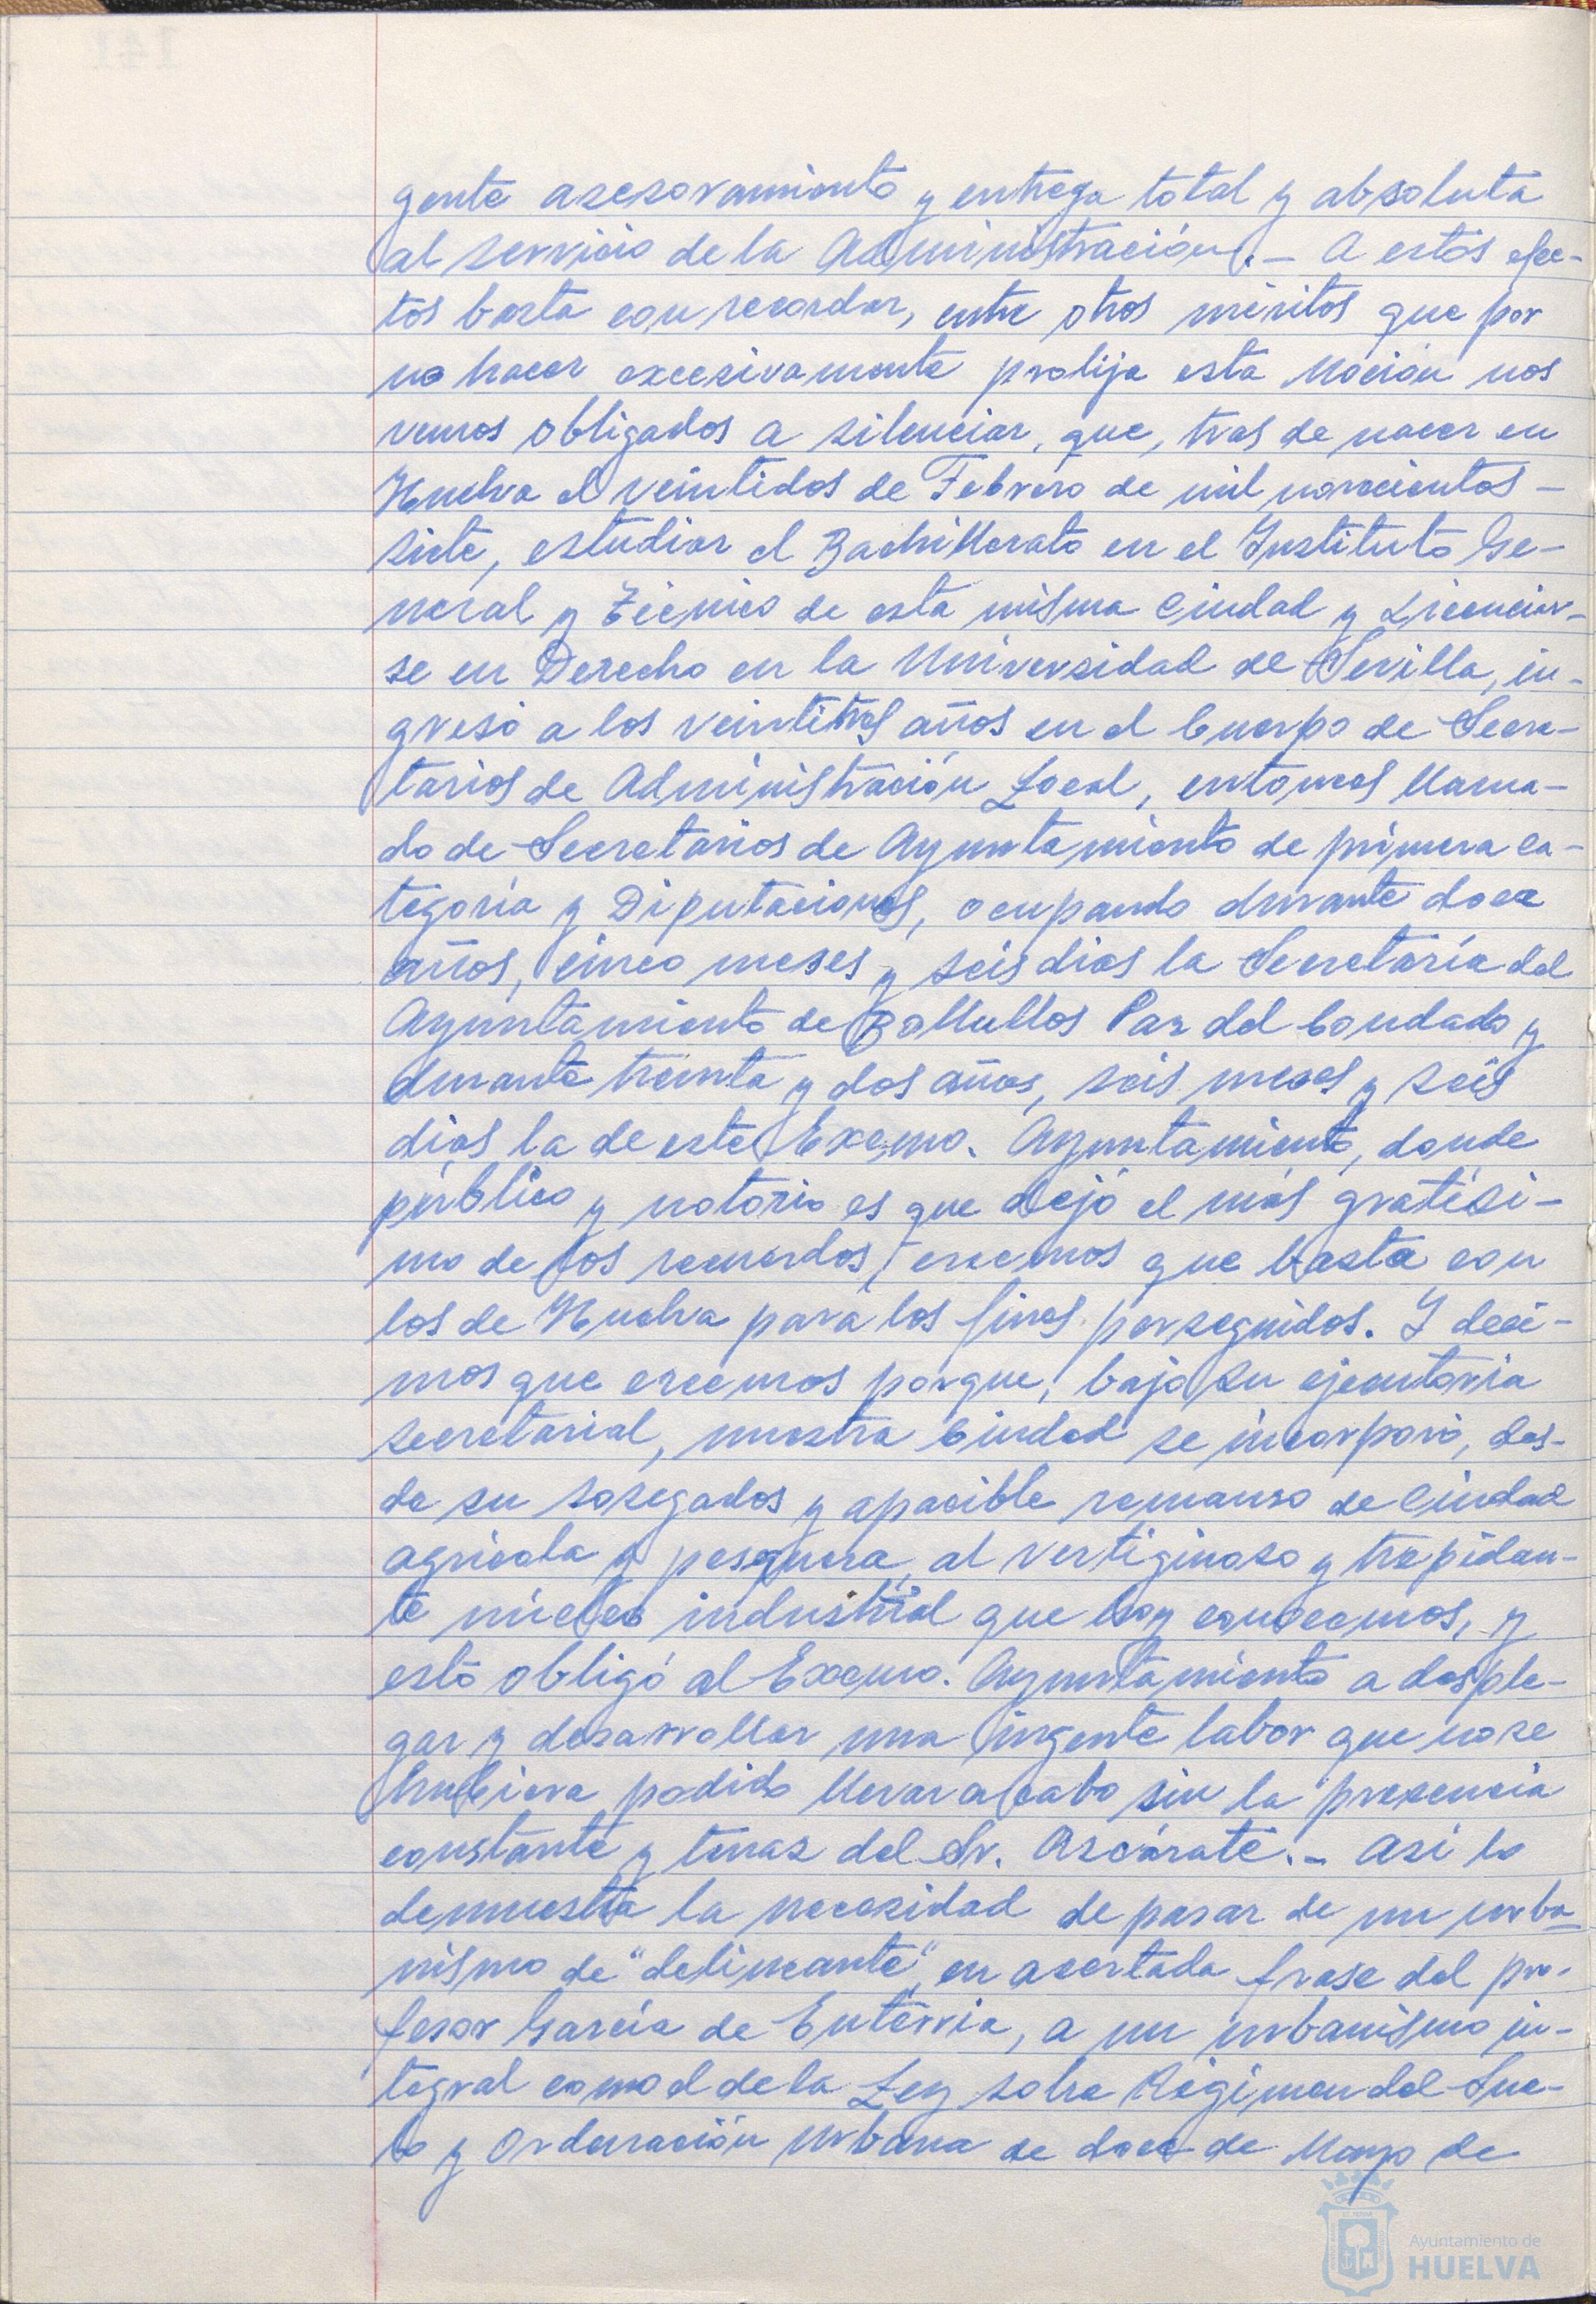 gente asesoramiento y entrega total y absoluta
al servicio de la Administración.- A estos efec-
tos basta con recordar, entre otros méritos que por
no hacer excesivamente prolija esta Moción nos
vemos obligados a silenciar, que, tras de nacer en
Huelva el veintidos de Febrero de mil novecientos -
siete, estudiar el Bachillerato en el Instituto Ge-
neral y Técnico de esta misma Ciudad y Licenciar-
se en Derecho en la Universidad de Sevilla, in-
gresó a los veintitres años en el Cuerpo de Secre-
tarios de Administración Local, entonces llama-
do de Secretarios de Ayuntamiento de primera ca-
tegoría y Diputaciones, ocupando durante doce
años, cinco meses y seis dias la Secretaría del
Ayuntamiento de Bollullos Par del Condado y
durante treinta y dos años, seis meses y seis
dias la de este Excmo. Ayuntamiento, donde
público y notorio es que dejó el más gratísi-
mo de los recuerdos, creemos que basta con
los de Huelva para los fines perseguidos. Y deci-
mos que creemos porque, bajo su ejecutoria
secretarial, nuestra Ciudad se incorporó, des-
de su sosegados y apacible remanso de Ciudad
agricola y pesquera, al vertiginoso y trepidan-
te núcleo industrial que hoy conocemos, y
esto obligó al Excmo. Ayuntamiento a desple-
gar y desarrollar una ingente labor que no se
hubiera podido llevar a cabo sin la presencia
constante y tenaz del Sr. Azcárate.- Así lo
demuestra la necesidad de pasar de un urba-
nismo de "delineante", en acertada frase del pro-
fesor García de Enterria, a un urbanismo in-
tegral como el de la Ley sobre Régimen del Sue-
lo y Ordenación Urbana de doce de Mayo de
Ayuntamiento de
HUELVA